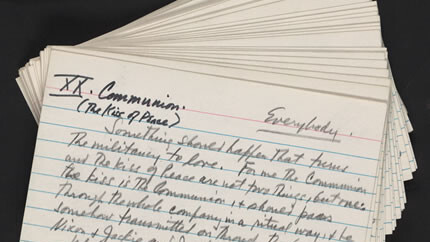 XX. Communion.
(The Kiss of Peace)
Everybody.
Something should happen that turns
The militancy to love. For me The Communion
and The Kiss of Peace are not two Things, but one:
The kiss is The Communion, & a shared
Through The whole company in a ritual way, & be
somehow transmitted on Through The
Nixon & Jackie